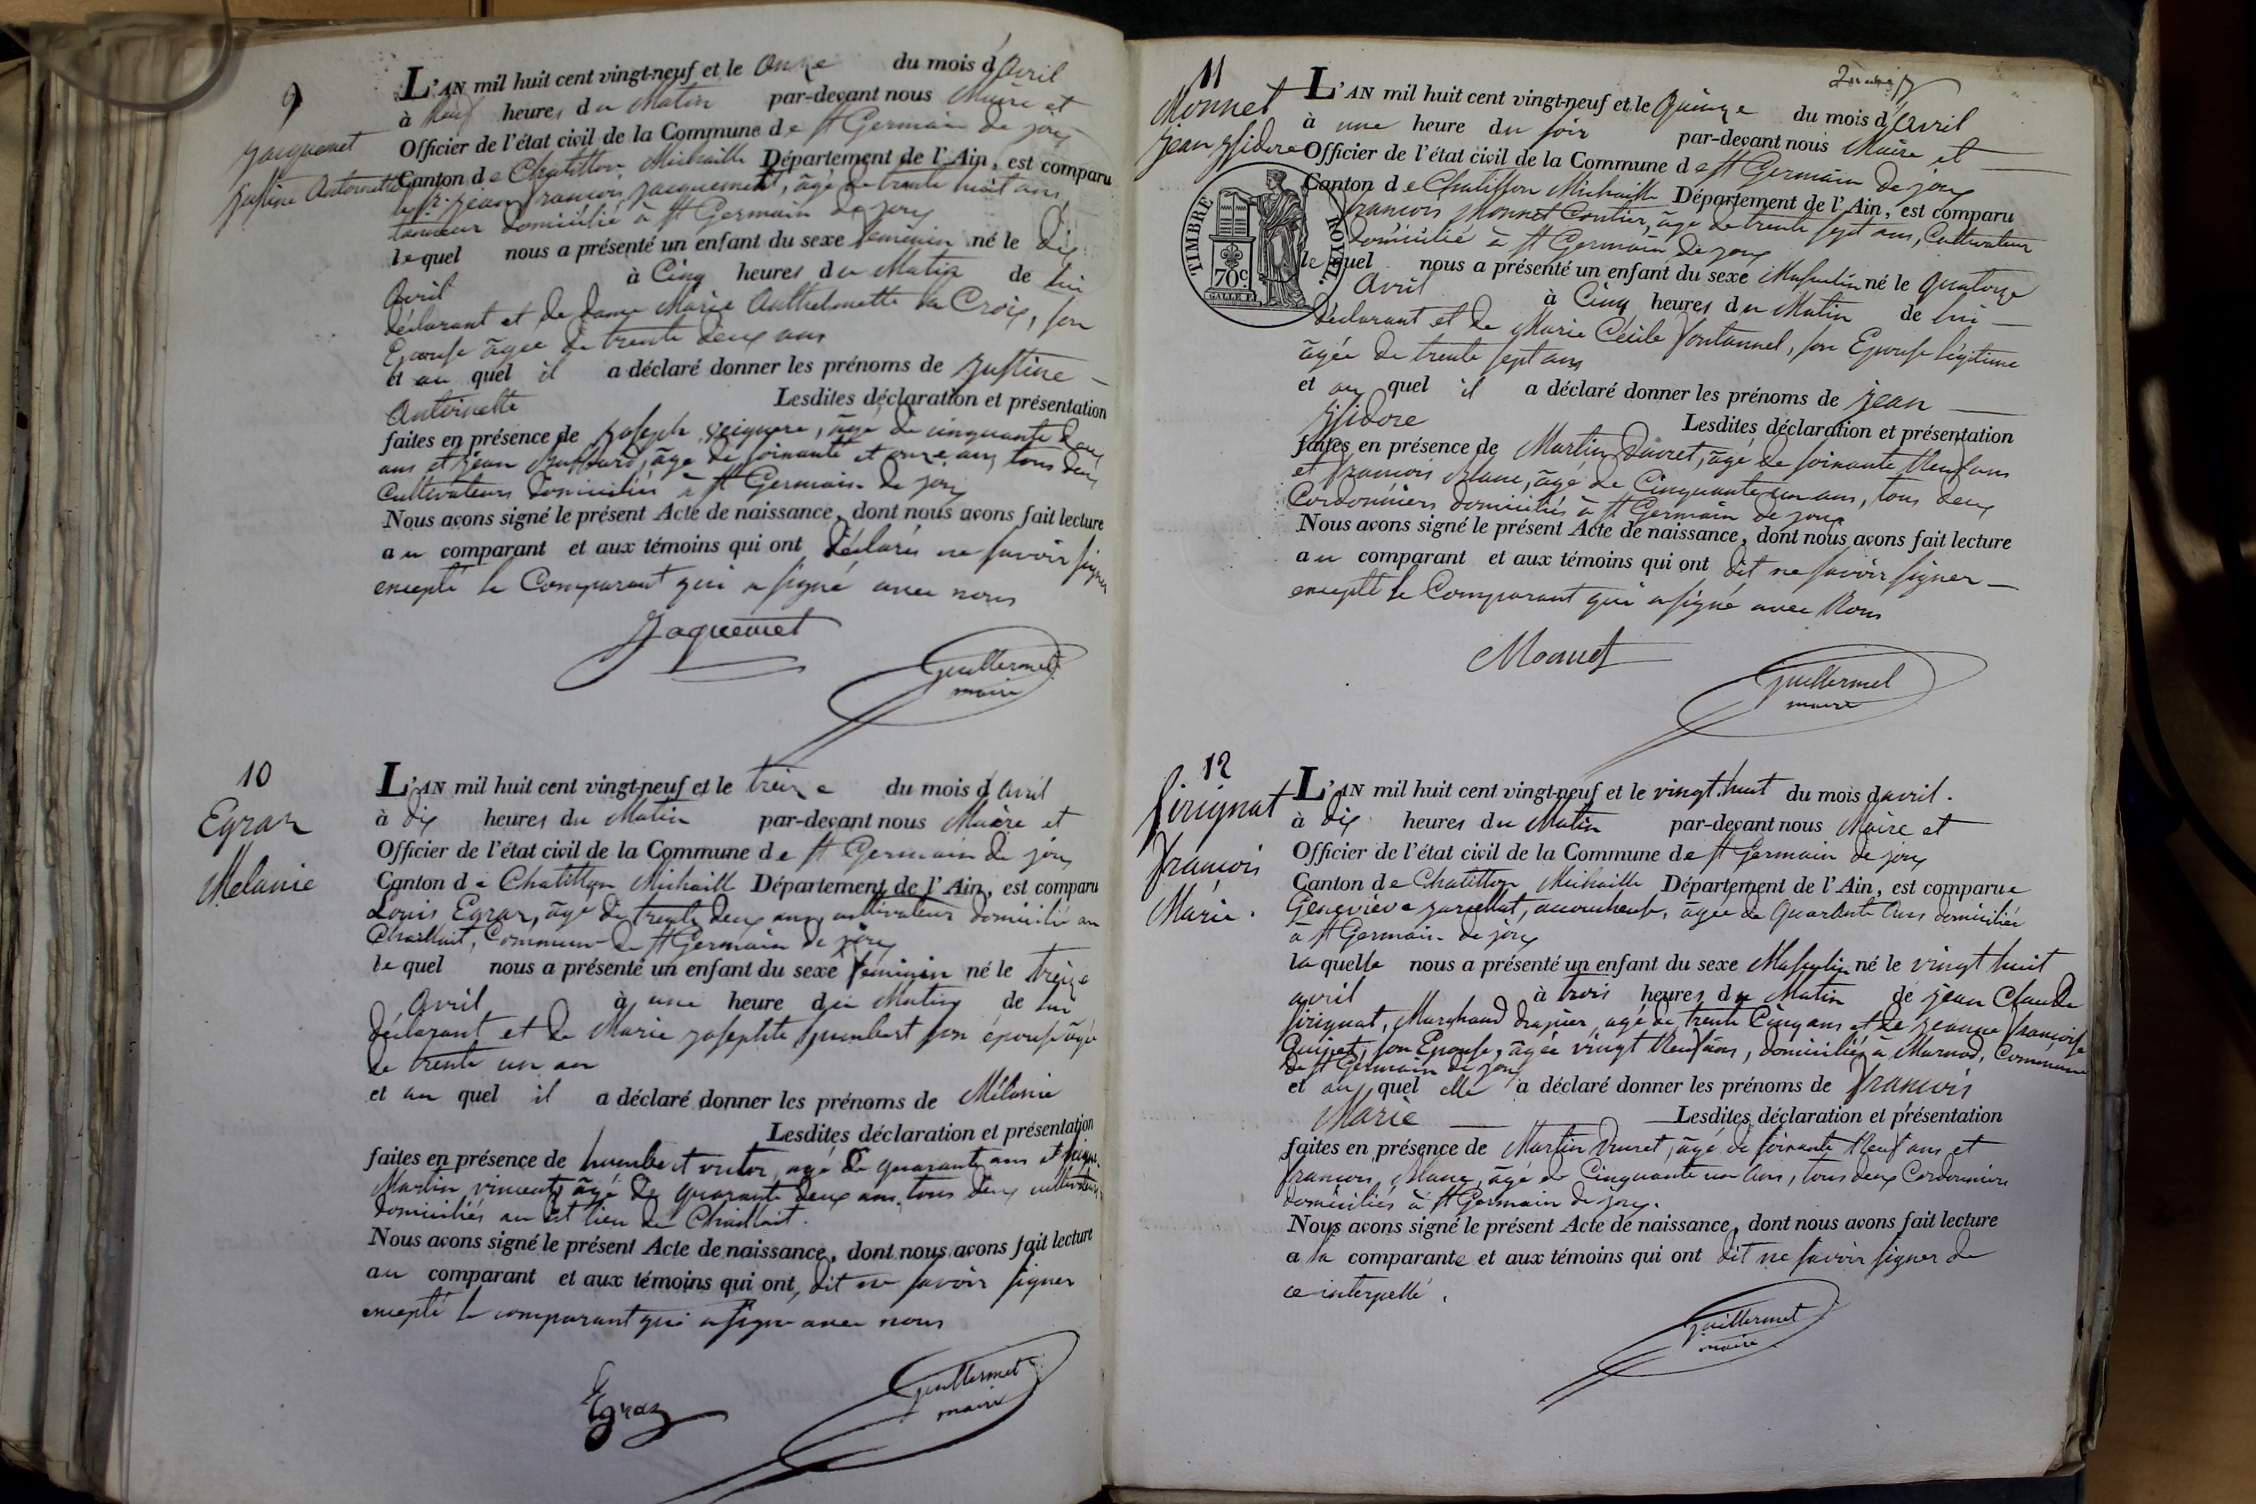 9
Jacquemet
Justine Antoinette
L'AN mil huit cent vingt-neuf et le onze du mois d'avril
à neuf heures du Matin par-devant nous Maire et
Officier de l'état civil de la Commune de St Germain de joux
Canton de Chatillon Michaille Département de l'Ain, est comparu
le Sr. jean francois jacquemet, âgé de trente huit ans
tanneur domicilié à St Germain de joux
lequel nous a présenté un enfant du sexe feminin né le dix
avril à Cinq heures du Matin de lui
déclarant et de dame Marie Anthelmette la Croix, son
Epouse âgée de trente deux ans
et au quel il a déclaré donner les prénoms de justine
Antoinette Lesdites déclaration et présentation
faites en présence de joseph, âgé de cinquante deux
ans et jean, âgé de soixante et onze ans, tous deux
Cultivateurs domiciliés à St Germain de joux
Nous avons signé le présent Acte de naissance, dont nous avons fait lecture
au comparant et aux témoins qui ont déclaré ne savoir signer
excepté le Comparant qui a signé avec nous
Jaquemet
Guillermet
maire
10
Egraz
Melanie
L'AN mil huit cent vingt-neuf et le treize du mois d'avril
à dix heures du Matin par-devant nous Maire et
Officier de l'état civil de la Commune de St Germain de joux
Canton de Chatillon Michaille Département de l'Ain, est comparu
Louis Egraz, âgé de trente deux ans, cultivateur domicilié au
Chaillait, Commune de St Germain de joux
lequel nous a présenté un enfant du sexe feminin né le treize
avril à une heure du Matin de lui
déclarant et de Marie josephte humbert son épouse âgée
de trente un an
et au quel il a déclaré donner les prénoms de Mélanie
Lesdites déclaration et présentation
faites en présence de humbert victor, agé de quarante ans et
Martin vincent, âgé de quarante deux ans, tous deux cultivateurs
domiciliés au dit lieu de Chaillait.
Nous avons signé le présent Acte de naissance, dont nous avons fait lecture
au comparant et aux témoins qui ont dit ne savoir signer
excepté le comparant qui a signé avec nous
Egraz
Guillermet
maire
11
Monnet
jean isidore
TIMBRE ROYAL.
70c.
L'AN mil huit cent vingt-neuf et le quinze du mois d'avril
à une heure du soir par-devant nous Maire et
Officier de l'état civil de la Commune de St Germain de joux
Canton de Chatillon Michaille Département de l'Ain, est comparu
francois Monnet Coutier, âgé de trente sept ans, Cultivateur
domicilié à St Germain de joux
lequel nous a présenté un enfant du sexe Masculin né le quatorze
avril à Cinq heures du Matin de lui
déclarant et de Marie Cécile fontannel, son Epouse légitime
âgée de trente sept ans
et au quel il a déclaré donner les prénoms de jean
isidore Lesdites déclaration et présentation
faites en présence de Martin Ducret, âgé de soixante Neuf ans
et francois Blanc, âgé de Cinquante un ans, tous deux
Cordonniers domiciliés à St Germain de joux
Nous avons signé le présent Acte de naissance, dont nous avons fait lecture
au comparant et aux témoins qui ont dit ne savoir signer
excepté le Comparant qui a signé avec Nous
Monnet
Guillermet
maire
12
Firignat
francois
Marie.
L'AN mil huit cent vingt-neuf et le vingt huit du mois d'avril.
à dix heures du Matin par-devant nous Maire et
Officier de l'état civil de la Commune de St Germain de joux
Canton de Chatillon Michaille Département de l'Ain, est comparue
Geneviève, accoucheuse, âgée de Quarante Ans domiciliée
à St Germain de joux
laquelle nous a présenté un enfant du sexe Masculin né le vingt huit
avril à trois heures du Matin de jean Claude
firignat, Marchand drapier, agé de trente Cinq ans et de jeanne francoise
Quinet, son Epouse, âgée vingt Neuf ans, domiciliés à Marnod, Commune
de St Germain de joux
et au quel elle a déclaré donner les prénoms de francois
Marie Lesdites déclaration et présentation
faites en présence de Martin Ducret, âgé de soixante Neuf ans et
francois Blanc, âgé de Cinquante un Ans, tous deux Cordonniers
domiciliés à St Germain de joux.
Nous avons signé le présent Acte de naissance, dont nous avons fait lecture
a la comparante et aux témoins qui ont dit ne savoir signer de
ce interpellé.
Guillermet
maire